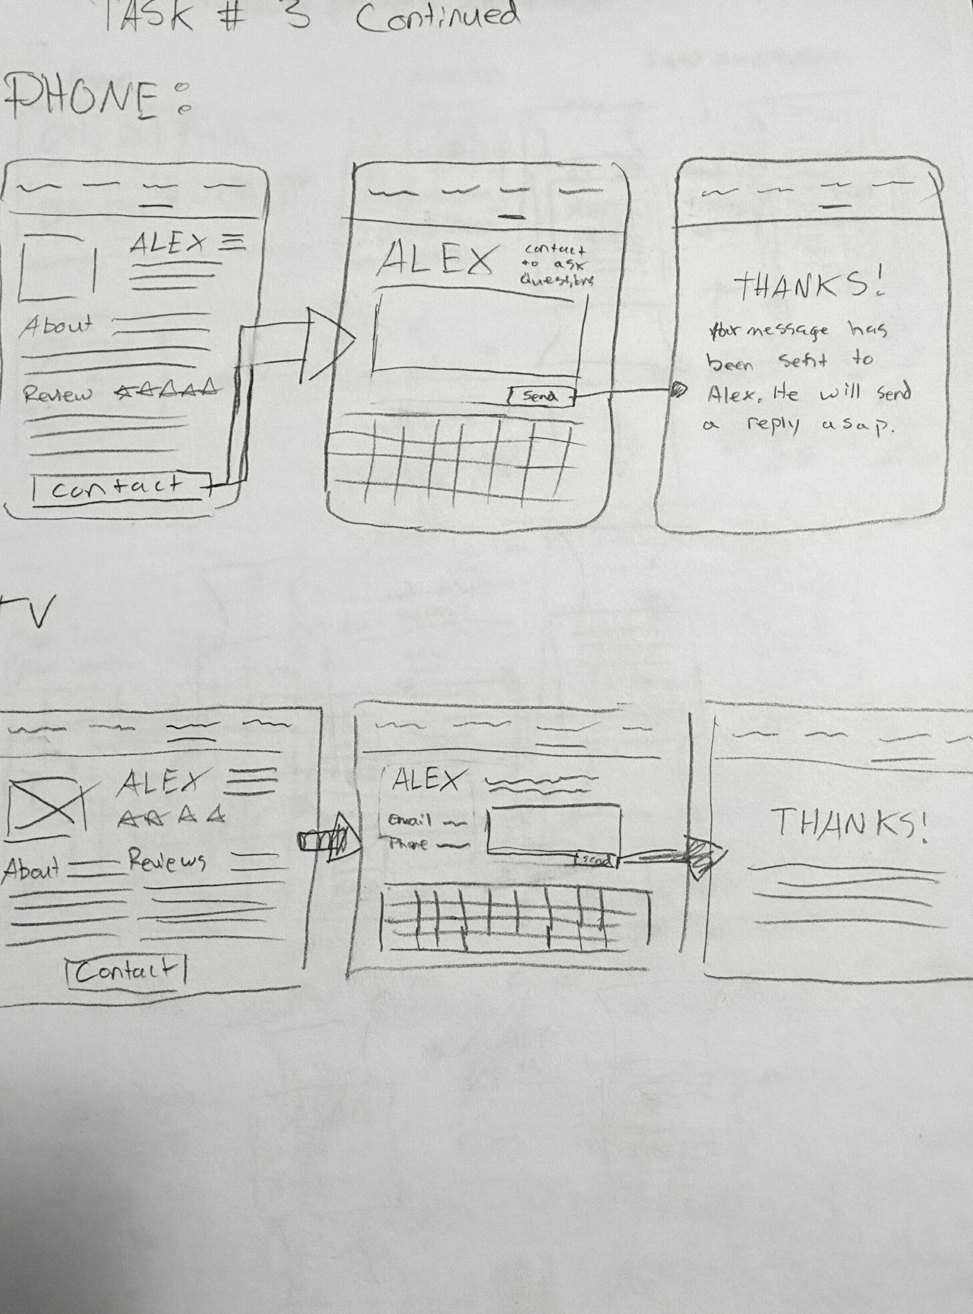 TASK # 3 Continued
PHONE:
ALEX
About
Review
contact
ALEX
contact
to ask
questions
Send
THANKS!
Your message has
been sent to
Alex. He will send
a reply asap.
TV
ALEX
About
Reviews
Contact
ALEX
Email
Phone
send
THANKS!